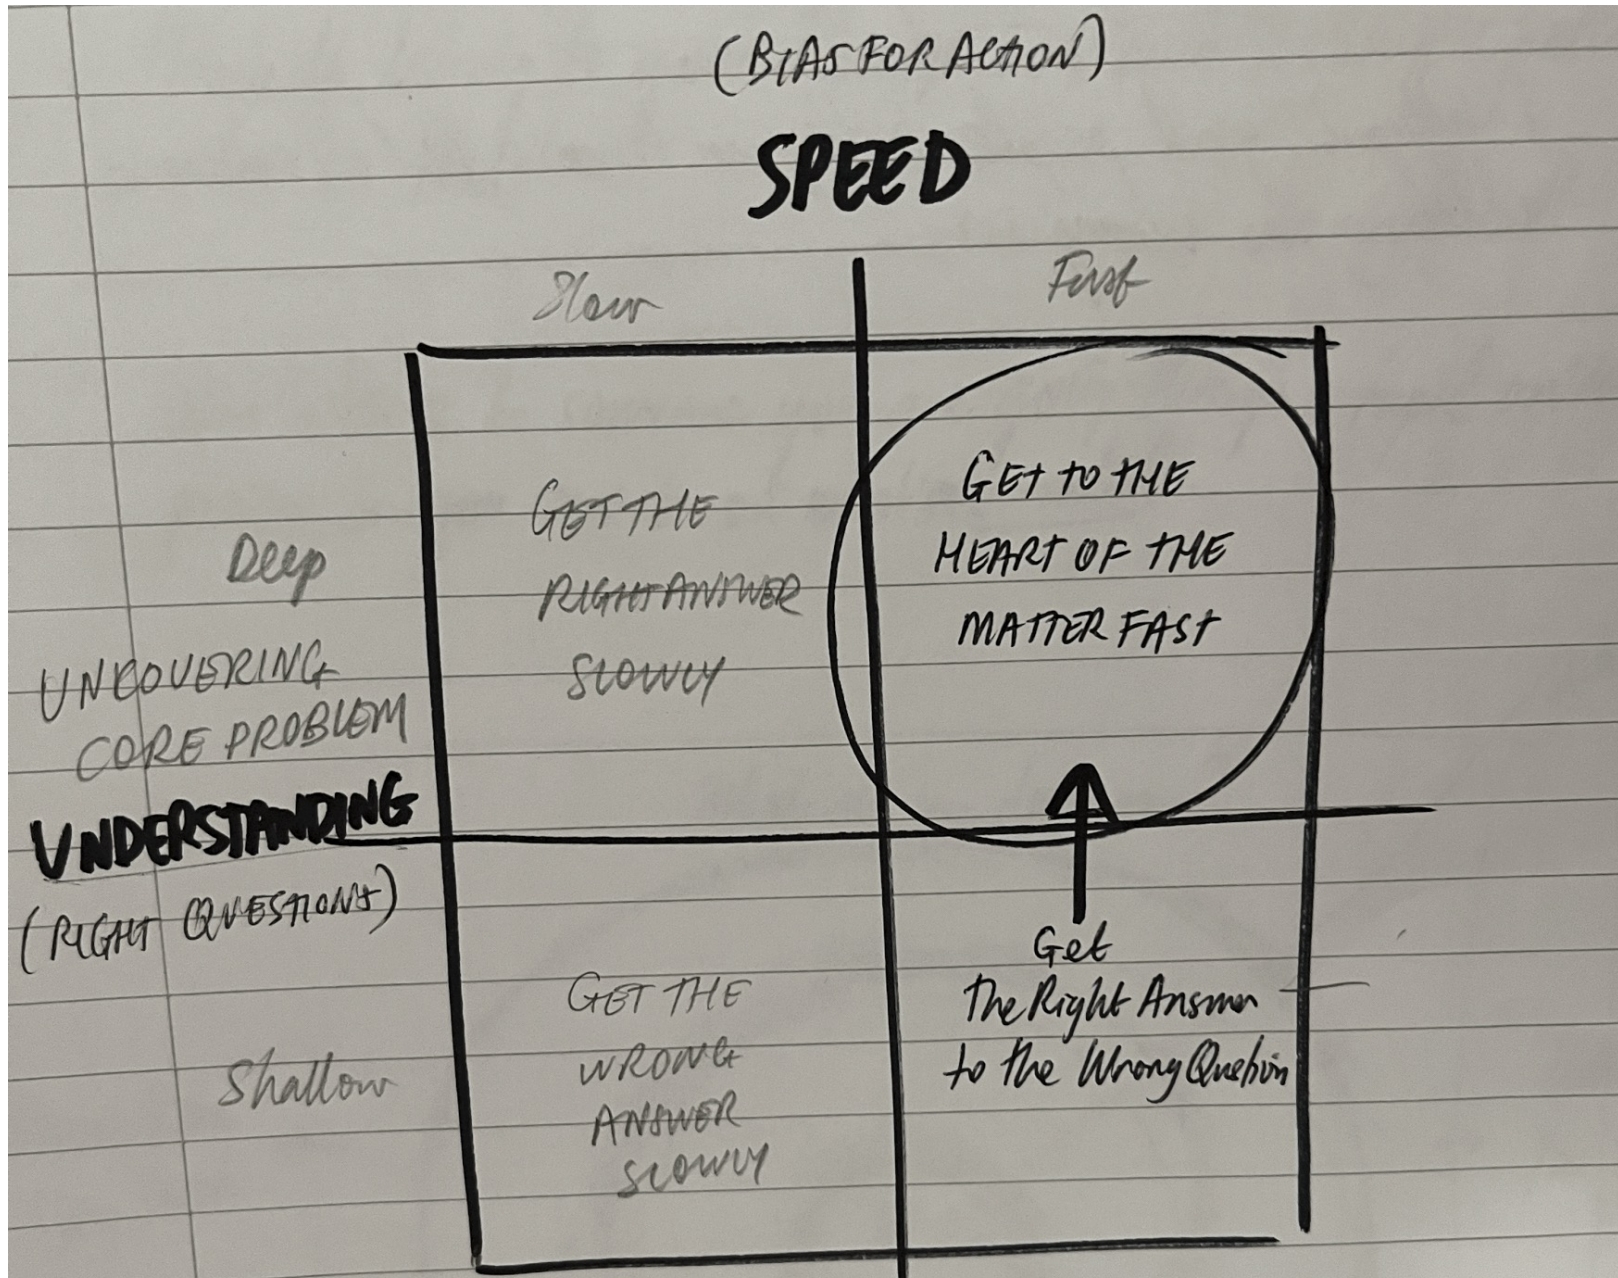 (BIAS FOR ACTION)
SPEED
Slow
Fast
Deep
UNCOVERING
CORE PROBLEM
UNDERSTANDING
(RIGHT QUESTIONS)
Shallow
GET THE
RIGHT ANSWER
SLOWLY
GET TO THE
HEART OF THE
MATTER FAST
GET THE
WRONG
ANSWER
SLOWLY
Get
The Right Answer
to the Wrong Question